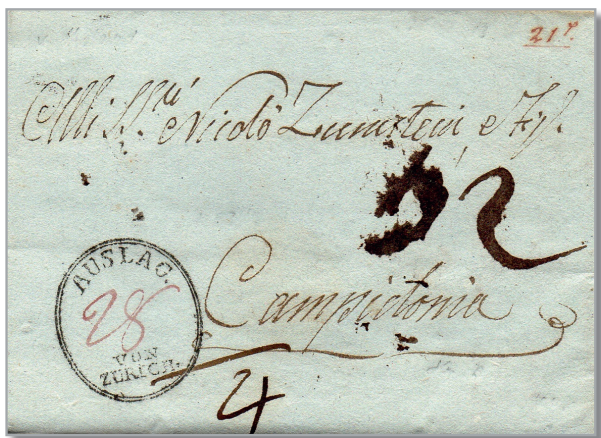 21 r.
Alli Sri. Nicolò Zumstein e Ff.
2
Campidonia
AUSLAG.
28
VON
ZÜRICH.
4